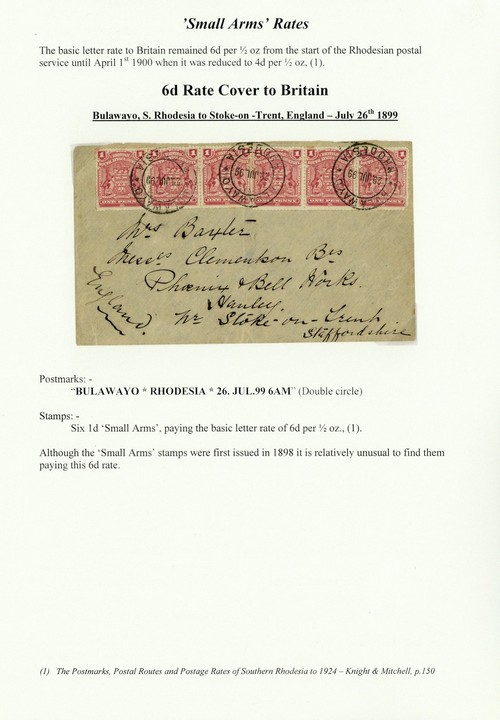 'Small Arms' Rates
The basic letter rate to Britain remained 6d per ½ oz from the start of the Rhodesian postal
service until April 1st 1900 when it was reduced to 4d per ½ oz, (1).
6d Rate Cover to Britain
Bulawayo, S. Rhodesia to Stoke-on -Trent, England – July 26th 1899
Mrs Baxter
Messrs Clementson Bros
Phœnix & Bell Works.
Hanley.
Nr Stoke-on-Trent
Staffordshire
England.
Postmarks: -
"BULAWAYO * RHODESIA * 26. JUL.99 6AM" (Double circle)
Stamps: -
Six 1d 'Small Arms', paying the basic letter rate of 6d per ½ oz., (1).
Although the 'Small Arms' stamps were first issued in 1898 it is relatively unusual to find them
paying this 6d rate.
(1) The Postmarks, Postal Routes and Postage Rates of Southern Rhodesia to 1924 – Knight & Mitchell, p.150